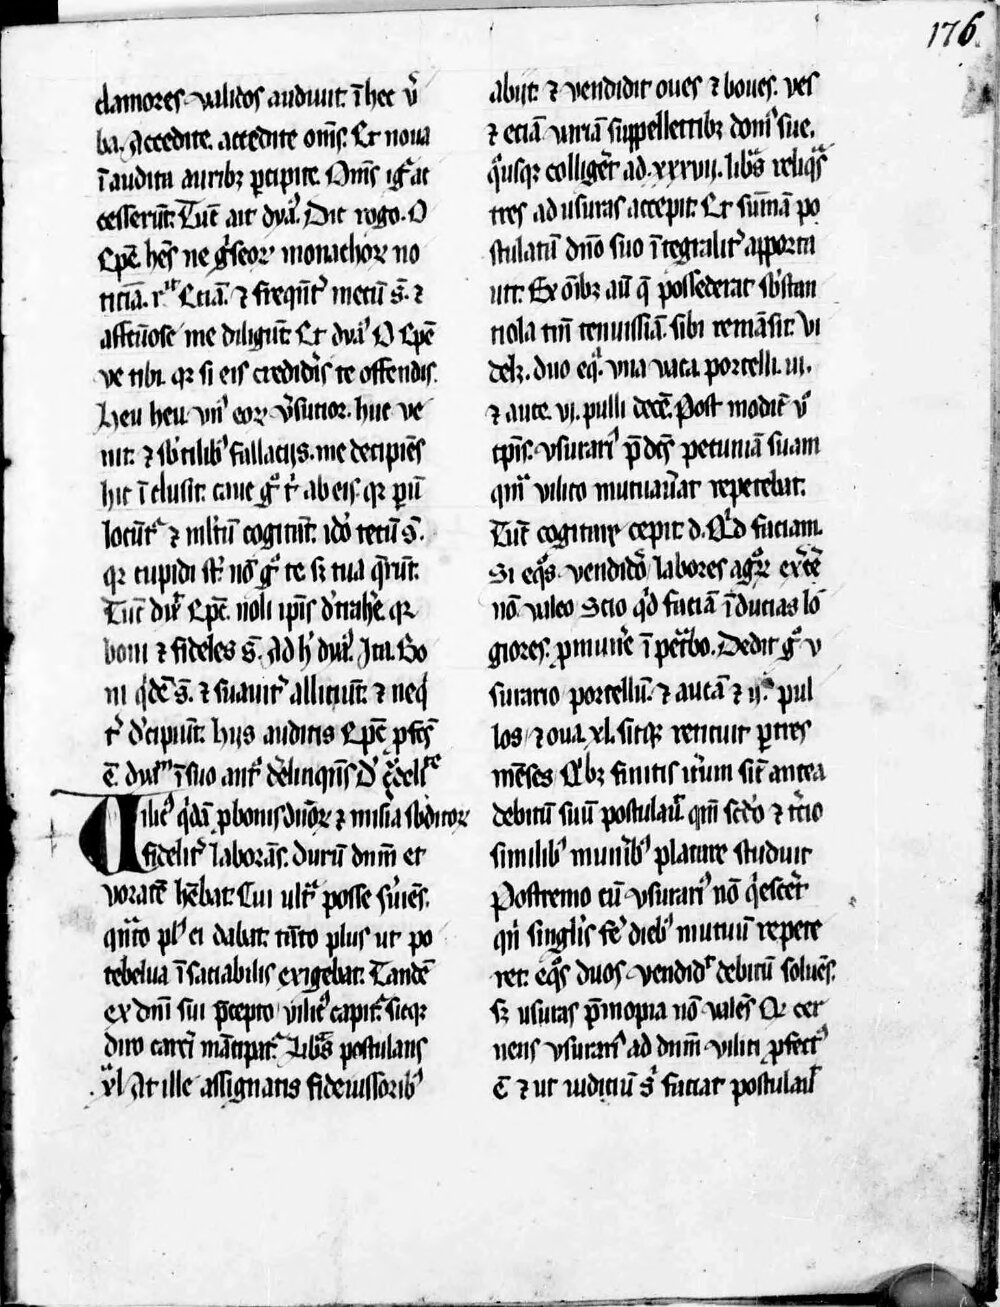 176
clamores validos audiuit. ī hec ṽ
ba. Accedite. accedite om̄s. Et noua
ī auditu auribꝫ ꝑcipite. Om̄s igͥ ac
cesserūt. Tūc ait dyāꝰ. Dic rogo. O
Epē hēs ne gͥseoꝝ monachoꝝ no
ticiā. rͩt Eciā. ⁊ freqn̄tͬ mecū s̄. ⁊
affcūose me diligūt. Et dyāꝰ O Epē
ve tibi. qꝛ si eis credidis te offendis.
heu heu. vnꝰ eoꝝ v̄sutior. huc ve
nit. ⁊ sbtilibꝰ fallacijs. me decipiēs
hic ī clusit. caue gͦ tͥ ab eis. qꝛ ꝑū
locūtͬ ⁊ ml̄tū cogitāt. idō tecū s̄.
qꝛ cupidi st̄. nō gͦ te sꝫ tua q̄rūt.
Tūc dixͭ Epē. noli ip̄is dͥtͣhe qꝛ
boni ⁊ fideles s̄. Ad hͦ dyāꝰ. Ita. Bo
ni qͥdē s̄. ⁊ suauitͬ alliciūt. ⁊ neqͥ
tͬ dͥcipiūt. hijs auditis Epē ꝓfcs̄
ē. dyāꝰm ī suo antͬ dēlinqn̄s
Uilicꝰ qͥdā ꝓ bonis dn̄oꝝ ⁊ misia sbditoꝝ
fidelitͬ laborās. durū dnm̄ et
voracē hēbat. Cui ultͣ posse suiēs.
qn̄to plꝰ ei dabat. tāto plus ut po
te belua īsaciabilis exigebat. Tandē
ex dn̄i sui p̄cepto vilicꝰ capitͬ. sicqꝫ
diro carcͥ mācipatͬ. Libͣs postulans
xl. At ille assignatis fideiussoribꝰ
abijt. ⁊ vendidit oues ⁊ boues. ves
⁊ etiā vniā suppellectibꝫ domꝰ sue.
qͦusqꝫ colligeͬt ad. xxxvij. libͣs reliqͣs
tres ad usuras accepit. Et sūmā po
stulatū dn̄o suo ītegralitͬ apporta
uit. Ex om̄ibꝫ aū q̄ possederat sbstan
tiola tm̄ tenuissiā. sibi remāsit. vi
delꝫ. duo eqͥ. vna vaca. porcelli. iij.
⁊ auce. vj. pulli decē. Post modicū vͦ
tp̄is. vsurariꝰ p̄dcs̄ pecuniā suam
qm̄ vilico mutuaūat repetebat.
Tūc cogitare cepit d. Qͥd faciam.
Si eqͦs vendidͦ labores agͦꝝ exc̄e
nō valeo Scio qͥd faciā īducias lō
giores. ꝓmunͥe īpetͣbo. Dedit gͦ v
surario porcellū. ⁊ aucā ⁊ ijͦ pul
los / ⁊ oua. xl. sicqꝫ reticuit ꝑ tres
mēses Qͥbꝫ finitis iťum sic̄ antea
debitū suū postulauͭ qm̄ scd̄o ⁊ tͥcio
similibꝰ munͥbꝰ placare studuit
Postremo cū vsurariꝰ nō qͥesceͬt
qn̄ singlͥs feͬ diebꝰ mutuū repete
ret. eqͦs duos vendidͭ debitū soluēs.
sꝫ usuras p̄ inopia nō valēs Qꝛ cer
nens vsurariꝰ ad dnm̄ vilici ꝓfectꝰ
ē ⁊ ut iudiciū sͥ faciat postulauͭ